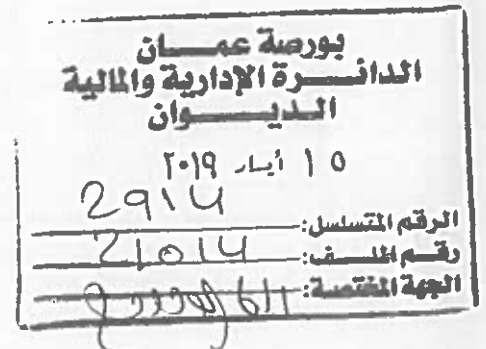 بورصة عمـــان
الدائـــرة الإدارية والمالية
الديـــوان
١٥ أيار ٢٠١٩
الرقم المتسلسل: 2914
رقم الملـف: 21014
الجهة المختصة: